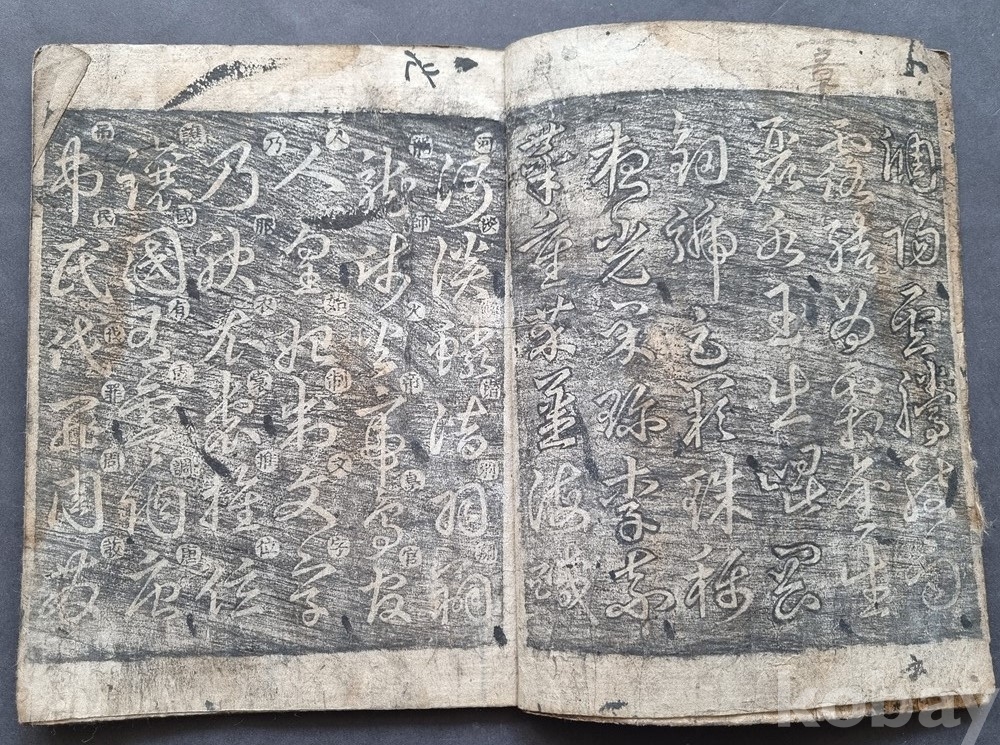 章
調陽雲騰致雨
露結爲霜金生
麗水玉出崑岡
劍號巨闕珠稱
夜光果珍李柰
菜重芥薑海鹹
河淡鱗潛羽翔
龍師火帝鳥官
人皇始制文字
乃服衣裳推位
讓國有虞陶唐
弔民伐罪周發
kobay